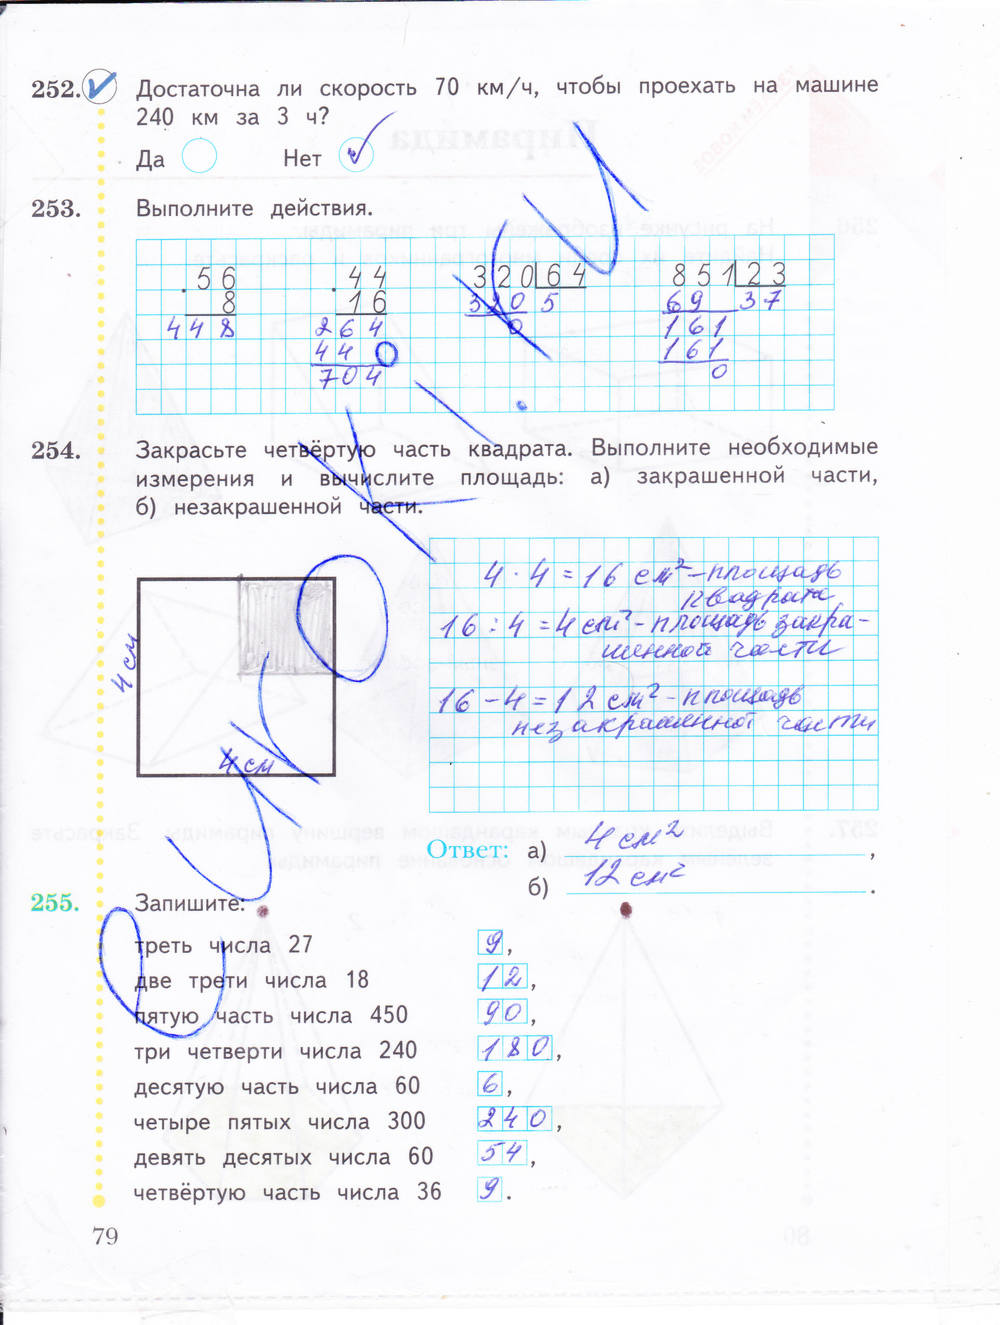 252. Достаточна ли скорость 70 км/ч, чтобы проехать на машине
240 км за 3 ч?
Да Нет
253. Выполните действия.
56 44 320 64 851 23
8 16 320 5 69 37
448 264 0 161
440 161
704 0
254. Закрасьте четвёртую часть квадрата. Выполните необходимые
измерения и вычислите площадь: а) закрашенной части,
б) незакрашенной части.
4 · 4 = 16 см² – площадь
квадрата
16 : 4 = 4 см² – площадь закра-
шенной части
16 – 4 = 12 см² – площадь
незакрашенной части
4 см
4 см
Ответ: а) 4 см²,
б) 12 см².
255. Запишите:
треть числа 27 9,
две трети числа 18 12,
пятую часть числа 450 90,
три четверти числа 240 180,
десятую часть числа 60 6,
четыре пятых числа 300 240,
девять десятых числа 60 54,
четвёртую часть числа 36 9.
79
euroki.ru